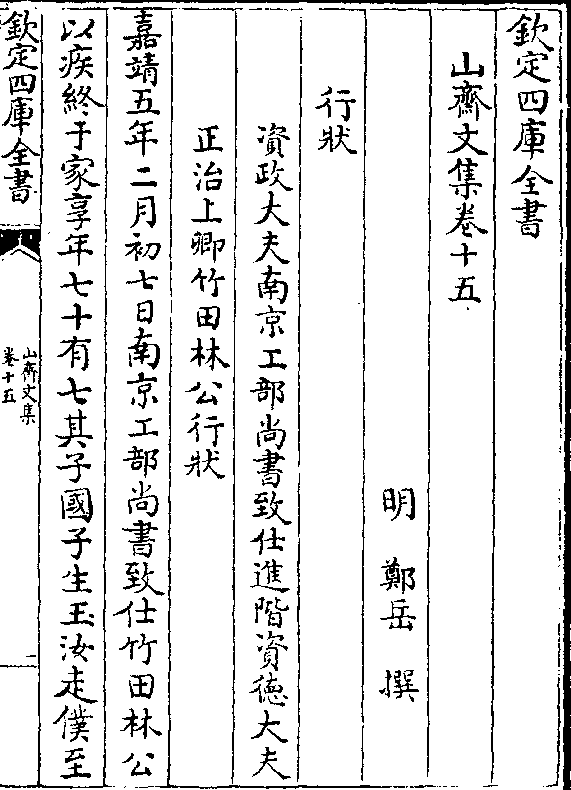 欽定四庫全書
山齋文集卷十五
明 鄭岳 撰
行狀
資政大夫南京工部尚書致仕進階資德大夫
正治上卿竹田林公行狀
嘉靖五年二月初七日南京工部尚書致仕竹田林公
以疾終于家享年七十有七其子國子生玉汝走僕至
欽定四庫全書
山齋文集
卷十五
一